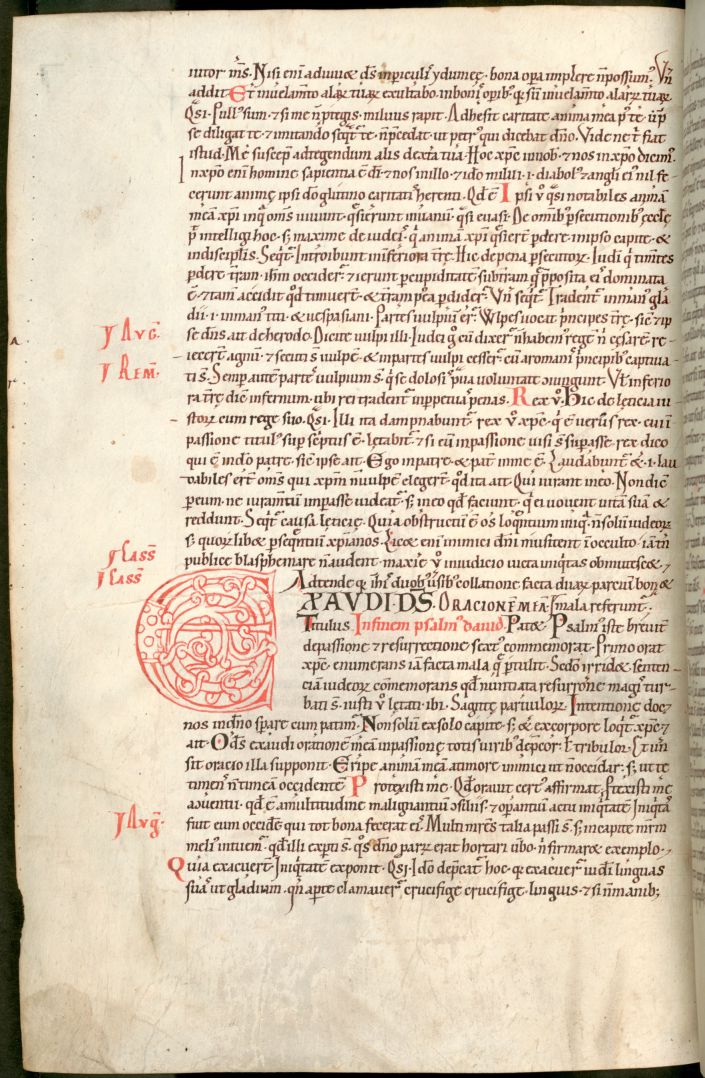 iutor m̅s. Nisi eni̅ adiuu& d̅s in periculi ydumeę. bona opera implere n̅ possum'. Vn̅
addit Et in uelam̅to alar̅ tuar̅ exultabo. in boni' operib; q̅ sun̅ in uelam̅to alar̅ tuar̅.
Q̅si. Pull' sum. & si me n̅ p̅tegis. miluus rapit. Adhesit caritate anima mea p' te. ut p̅
se diligat te & imitando seq̅t' te. n̅ p̅cedat. ut petr' qui dicebat d̅no. Vide ne t' fiat
istud. Me suscep̅ ad tegendum alis dext̅a tua. Hoc xp̅e in nob. & nos in xp̅o diem'.
In xp̅o eni̅ homine sapientia e̅ d̅i
cerunt animę ipsi d̅o glutino caritati' herenti. Qd̅ e̅ Ipsi v̊ q̅si notabiles anima̅
mea̅ xp̅i inq̅ om̅s uiuunt. q̅sierunt in uanu̅. q̅si euasi. De omib; p̅secutionib; ęcclę
p̅ intelligi hoc. s; maxime de iudei'. q̅ anima̅ xp̅i q̅sier̅t p̅dere in ipso capite. &
in discip̅lis. Seq̅t'. Introibunt in inferiora t̅re. Hic de pena p̅secutor̅. Iudi̅ q̅ tim̅tes
p̅dere t̅ram. ih̅m occider̅t. & ierunt p̅ cupiditate̅ sub t̅ram q̅ p̅posita ei' dominata
e̅. & tam̅ accidit qd̅ timuer̅t. & t̅ram p̅ea p̅dider̅t. Vn̅ seq̅t'. Tradent' in man' gla
dii .i. in man' titi. & uespasiani. Partes uulpiu̅ er̅t. Wlpes uocat p̅ncipes t̅rę. sic & ip
se d̅ns. ait de herode. Dicite uulpi illi. Iudei g̊ cu̅ dixer̅t n̅ habem' rege̅ n̅ cęsare̅. re-
iecer̅t agnu̅. & secuti s̅ uulpe̅. & in partes uulpi' cesser̅t. cu̅ a romani' p̅ncipib; captiua
ti s̅. Semp̅ aute̅ parte' uulpium s̅. q̅ se dolosi' p̅ua uoluntate ɔiungunt. Vl̅ inferio
ra t̅rę dic̅ infernum. ubi rei tradent' in p̅petua' penas. Rex v̊. Hic de lęticia iu
stor̅ cum rege suo. Q̅si. Illi ita dampnabunt'. rex v̊ xp̅c. q̅ e̅ verus rex. cui' i̅
passione titul' sup̅ sc̅ptus e̅. lętabit'. & si eu̅ in passione uisi s̅ sup̅asse. rex dico
qui e̅ in d̅o patre. sic̅ ipse ait. Ego in patre. & pat̅ in me e̅. Laudabunt' &c. .i. lau
dabiles er̅t om̅s qui xp̅m n̅ uulpe̅ eleger̅t. qd̅ ita ait. Qui iurant in eo. Non dic̅
per eum. ne iuram̅tu̅ inp̅asse uideat'. s; in eo qd̅ faciunt. q̅ ei uouent uita̅ sua̅ &
reddunt. Seq̅t' causa lęticię. Quia obstructu̅ e̅ os loq̅ntium iniq̅. n̅ solu̅ iudeor̅
s; quor̅ lib& p̅seq̅ntiu̅ xp̅ianos. Lic& eni̅ inimici d̅ni musitent i̅ occulto. iam̅
publice blasphemare n̅ audent. maxi̅e v̊ in iudicio iucta iniq̅tas obmutesc& . &
Adtende q̅ ih̅c duob; usib; collatione facta duar̅ parciu̅ bon̅ &
EXAVDI. D̅S. ORACIONEM MEA̅ mala referunt'.
Titulus In finem psalm' david. Pat&. Psalm' iste breuit̅
de passione & resurrectione sexto' commemorat. Primo orat
xp̅c. enumerans ia̅ facta mala q̅ p̅tulit. Sed̅o irrid& senten
cia̅ iudeor̅ co̅memorans qd̅ nuntiata resurr̅one magi' tur-
bati s̅. iusti v̊ lętati. ibi. Sagittę paruulor̅. Intentione̅ doc&
nos in d̅no sp̅are cum patim'. Non solu̅ ex solo capite. s; & ex corpore loq̅t' xp̅c &
ait. O d̅s exaudi oratione̅ mea̅ in passionę totis uirib; dep̅cor. cu̅ tribulor. Et un̅
sit oracio illa supponit. Eripe anima̅ mea̅ a timore inimici ut n̅ occidar. s; ut te
timen̅' n̅ timea̅ occidente̅ Protexisti me. Qd̅ orauit cert' affirmat. p̅texisti me
a ɔuentu. qd̅ e̅ a multitudine malignantiu̅ ɔsiliis. & operantiu̅ actu iniq̅tate̅ Iniq̅ta'
fuit eum occide' qui tot bona fecerat ei'. Multi m̅res talia passi s̅. s; in capite n̅r̅m
meli' intuem̅'. qd̅ illi exp̅ti s̅. q̅s d̅no parar̅ erat hortari ubo. n̅ firmar& exemplo.
Quia exacuer̅t. Iniq̅tate̅ exponit. Q̅si. Id̅o dep̅cat' hoc. q̅ exacuer̅t iudi̅ linguas
sua' ut gladium. q̅n ap̅te clamauer̅t. crucifige crucifige. linguis. & si n̅ manib;
Aug̅.
Rem̅.
Cass̅
Cass̅
Aug̅.